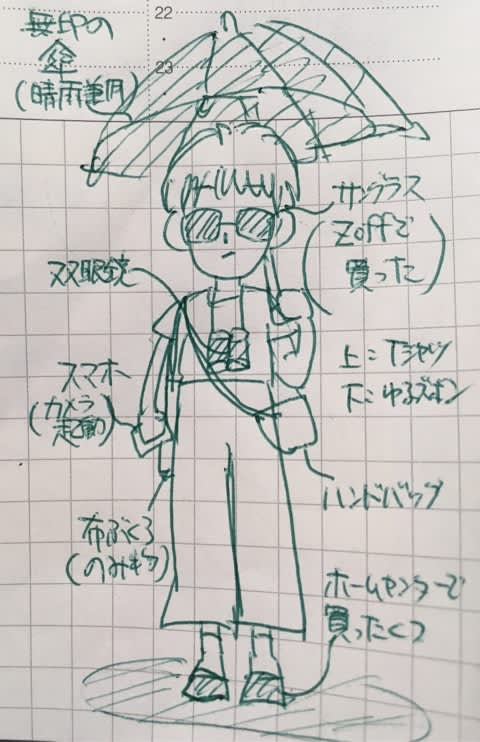 22
23
無印の
傘
(晴雨兼用)
サングラス
(Zoffで
買った)
双眼鏡
上:Tシャツ
下:ゆるズボン
スマホ
(カメラ
起動)
ハンドバッグ
布ぶくろ
(のみ物)
ホームセンターで
買ったくつ